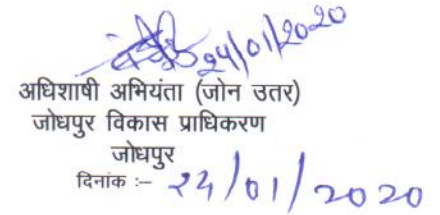 24/01/2020
अधिशाषी अभियंता (जोन उतर)
जोधपुर विकास प्राधिकरण
जोधपुर
दिनांक :– 24/01/2020